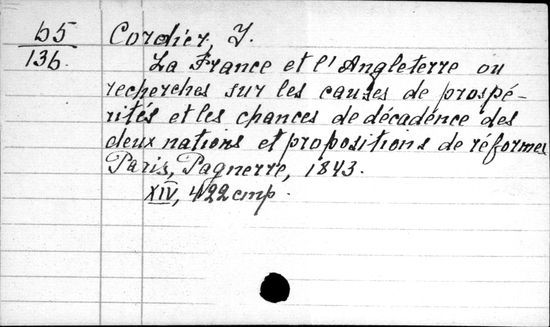 65
136.
Cordier, J.
La France et l'Angleterre ou
recherches sur les causes de prospé-
rités et les chances de décadence des
deux nations et propositions de réformes
Paris, Pagnerre, 1843.
XIV, 422 cmp.